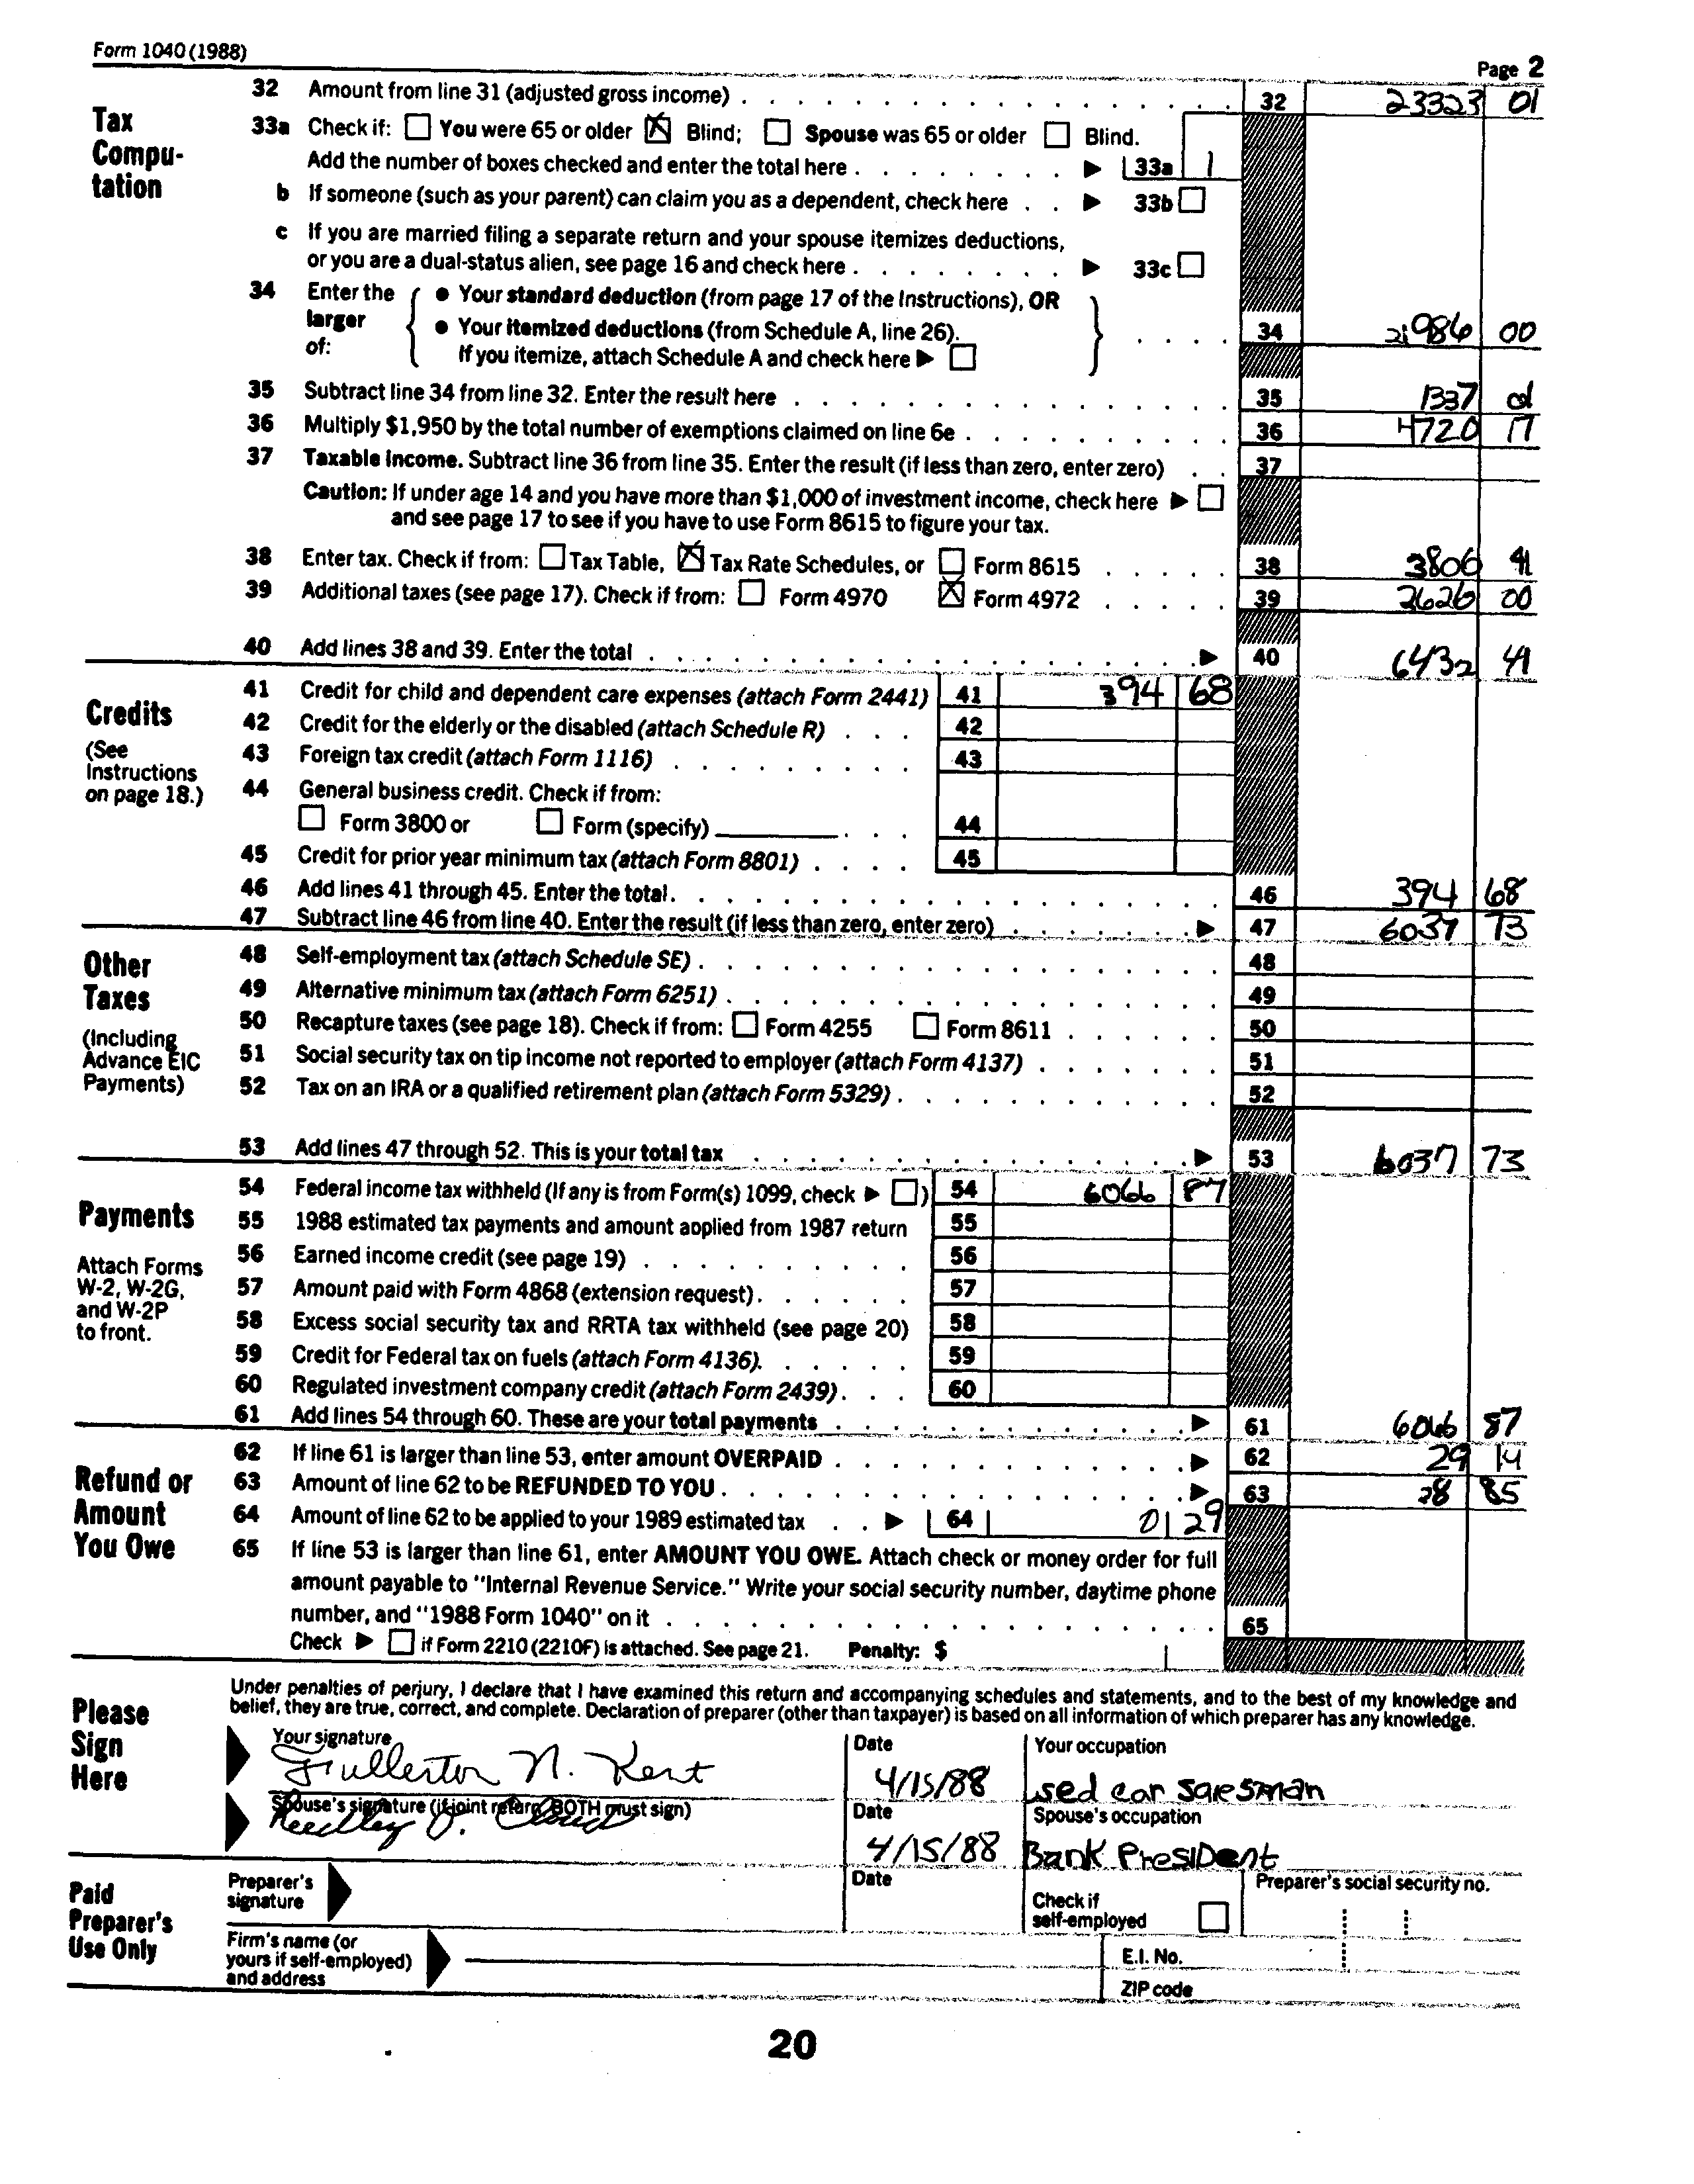 Form 1040 (1988)
Page 2
Tax Compu-tation
32 Amount from line 31 (adjusted gross income) 32 23323 01
33a Check if: You were 65 or older Blind; Spouse was 65 or older Blind.
Add the number of boxes checked and enter the total here 33a 1
b If someone (such as your parent) can claim you as a dependent, check here 33b
c If you are married filing a separate return and your spouse itemizes deductions,
or you are a dual-status alien, see page 16 and check here 33c
34 Enter the larger of:
• Your standard deduction (from page 17 of the Instructions), OR
• Your itemized deductions (from Schedule A, line 26).
If you itemize, attach Schedule A and check here
34 21986 00
35 Subtract line 34 from line 32. Enter the result here 35 1337 01
36 Multiply $1,950 by the total number of exemptions claimed on line 6e 36 4720 17
37 Taxable income. Subtract line 36 from line 35. Enter the result (if less than zero, enter zero) 37
Caution: If under age 14 and you have more than $1,000 of investment income, check here
and see page 17 to see if you have to use Form 8615 to figure your tax.
38 Enter tax. Check if from: Tax Table, Tax Rate Schedules, or Form 8615 38 3806 41
39 Additional taxes (see page 17). Check if from: Form 4970 Form 4972 39 2626 00
40 Add lines 38 and 39. Enter the total 40 6432 41
Credits
(See Instructions on page 18.)
41 Credit for child and dependent care expenses (attach Form 2441) 41 394 68
42 Credit for the elderly or the disabled (attach Schedule R) 42
43 Foreign tax credit (attach Form 1116) 43
44 General business credit. Check if from:
Form 3800 or Form (specify) 44
45 Credit for prior year minimum tax (attach Form 8801) 45
46 Add lines 41 through 45. Enter the total. 46 394 68
47 Subtract line 46 from line 40. Enter the result (if less than zero, enter zero) 47 6037 73
Other Taxes
(Including Advance EIC Payments)
48 Self-employment tax (attach Schedule SE) 48
49 Alternative minimum tax (attach Form 6251) 49
50 Recapture taxes (see page 18). Check if from: Form 4255 Form 8611 50
51 Social security tax on tip income not reported to employer (attach Form 4137) 51
52 Tax on an IRA or a qualified retirement plan (attach Form 5329) 52
53 Add lines 47 through 52. This is your total tax 53 6037 73
Payments
Attach Forms W-2, W-2G, and W-2P to front.
54 Federal income tax withheld (If any is from Form(s) 1099, check ) 54 6066 87
55 1988 estimated tax payments and amount applied from 1987 return 55
56 Earned income credit (see page 19) 56
57 Amount paid with Form 4868 (extension request) 57
58 Excess social security tax and RRTA tax withheld (see page 20) 58
59 Credit for Federal tax on fuels (attach Form 4136). 59
60 Regulated investment company credit (attach Form 2439) 60
61 Add lines 54 through 60. These are your total payments 61 6066 87
Refund or Amount You Owe
62 If line 61 is larger than line 53, enter amount OVERPAID 62 29 14
63 Amount of line 62 to be REFUNDED TO YOU 63 28 85
64 Amount of line 62 to be applied to your 1989 estimated tax 64 0 29
65 If line 53 is larger than line 61, enter AMOUNT YOU OWE. Attach check or money order for full
amount payable to "Internal Revenue Service." Write your social security number, daytime phone
number, and "1988 Form 1040" on it 65
Check if Form 2210 (2210F) is attached. See page 21. Penalty: $
Please Sign Here
Under penalties of perjury, I declare that I have examined this return and accompanying schedules and statements, and to the best of my knowledge and
belief, they are true, correct, and complete. Declaration of preparer (other than taxpayer) is based on all information of which preparer has any knowledge.
Your signature Date Your occupation
Fullerton N. Kent 4/15/88 used car salesman
Spouse's signature (if joint return, BOTH must sign) Date Spouse's occupation
Reedley J. Cloud 4/15/88 Bank President
Paid Preparer's Use Only
Preparer's signature Date Check if self-employed Preparer's social security no.
Firm's name (or yours if self-employed) and address E.I. No.
ZIP code
20